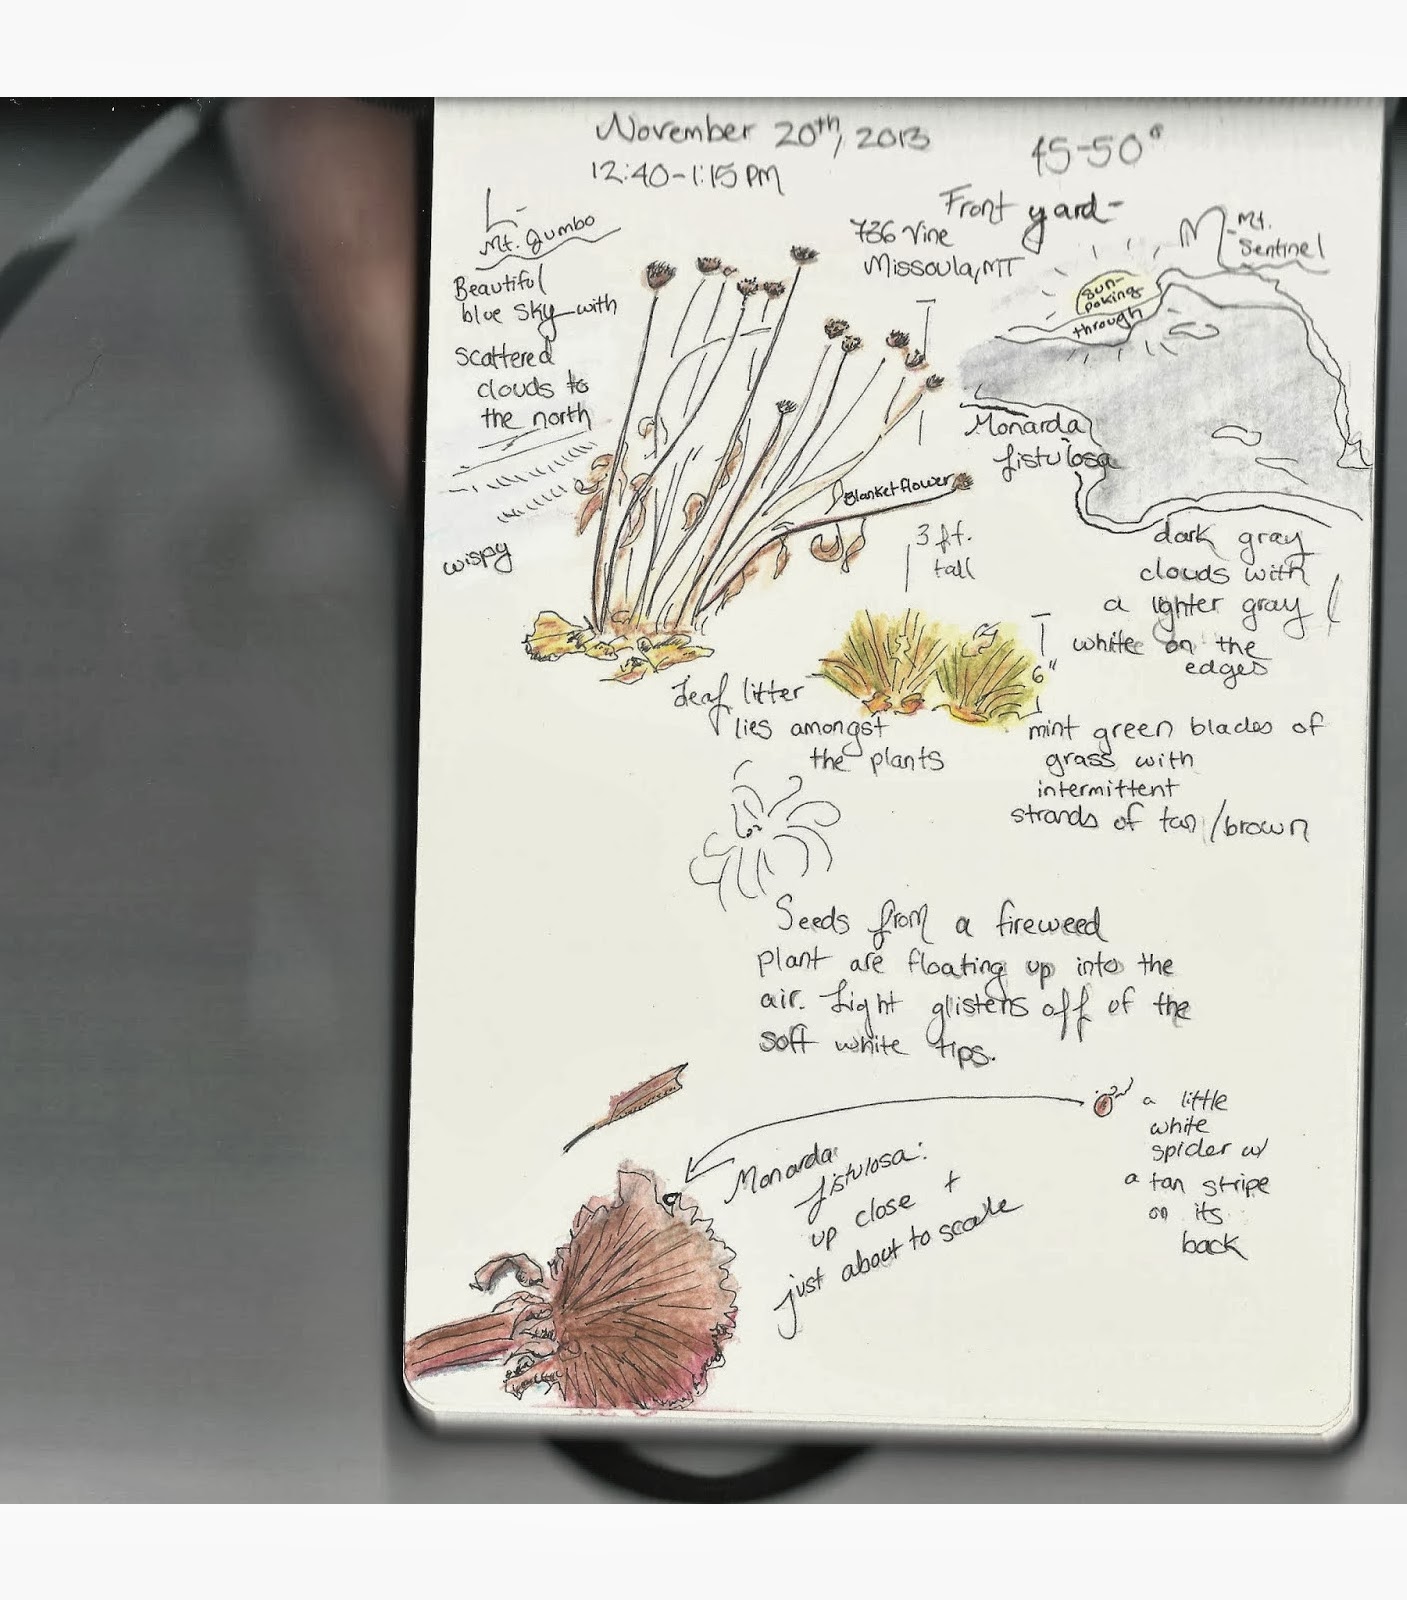 November 20th, 2013
12:40-1:15 PM
45-50°
Front yard-
736 Vine
Missoula, MT
L-
Mt. Jumbo
Beautiful
blue sky with
scattered
clouds to
the north
wispy
M-Mt.
Sentinel
sun-
poking
through
Monarda
fistulosa
Blanketflower
3 ft.
tall
dark gray
clouds with
a lighter gray /
white on the
edges
6"
leaf litter
lies amongst
the plants
mint green blades of
grass with
intermittent
strands of tan/brown
Seeds from a fireweed
plant are floating up into the
air. Light glistens off of the
soft white tips.
a little
white
spider w/
a tan stripe
on its
back
Monarda
fistulosa:
up close +
just about to scale